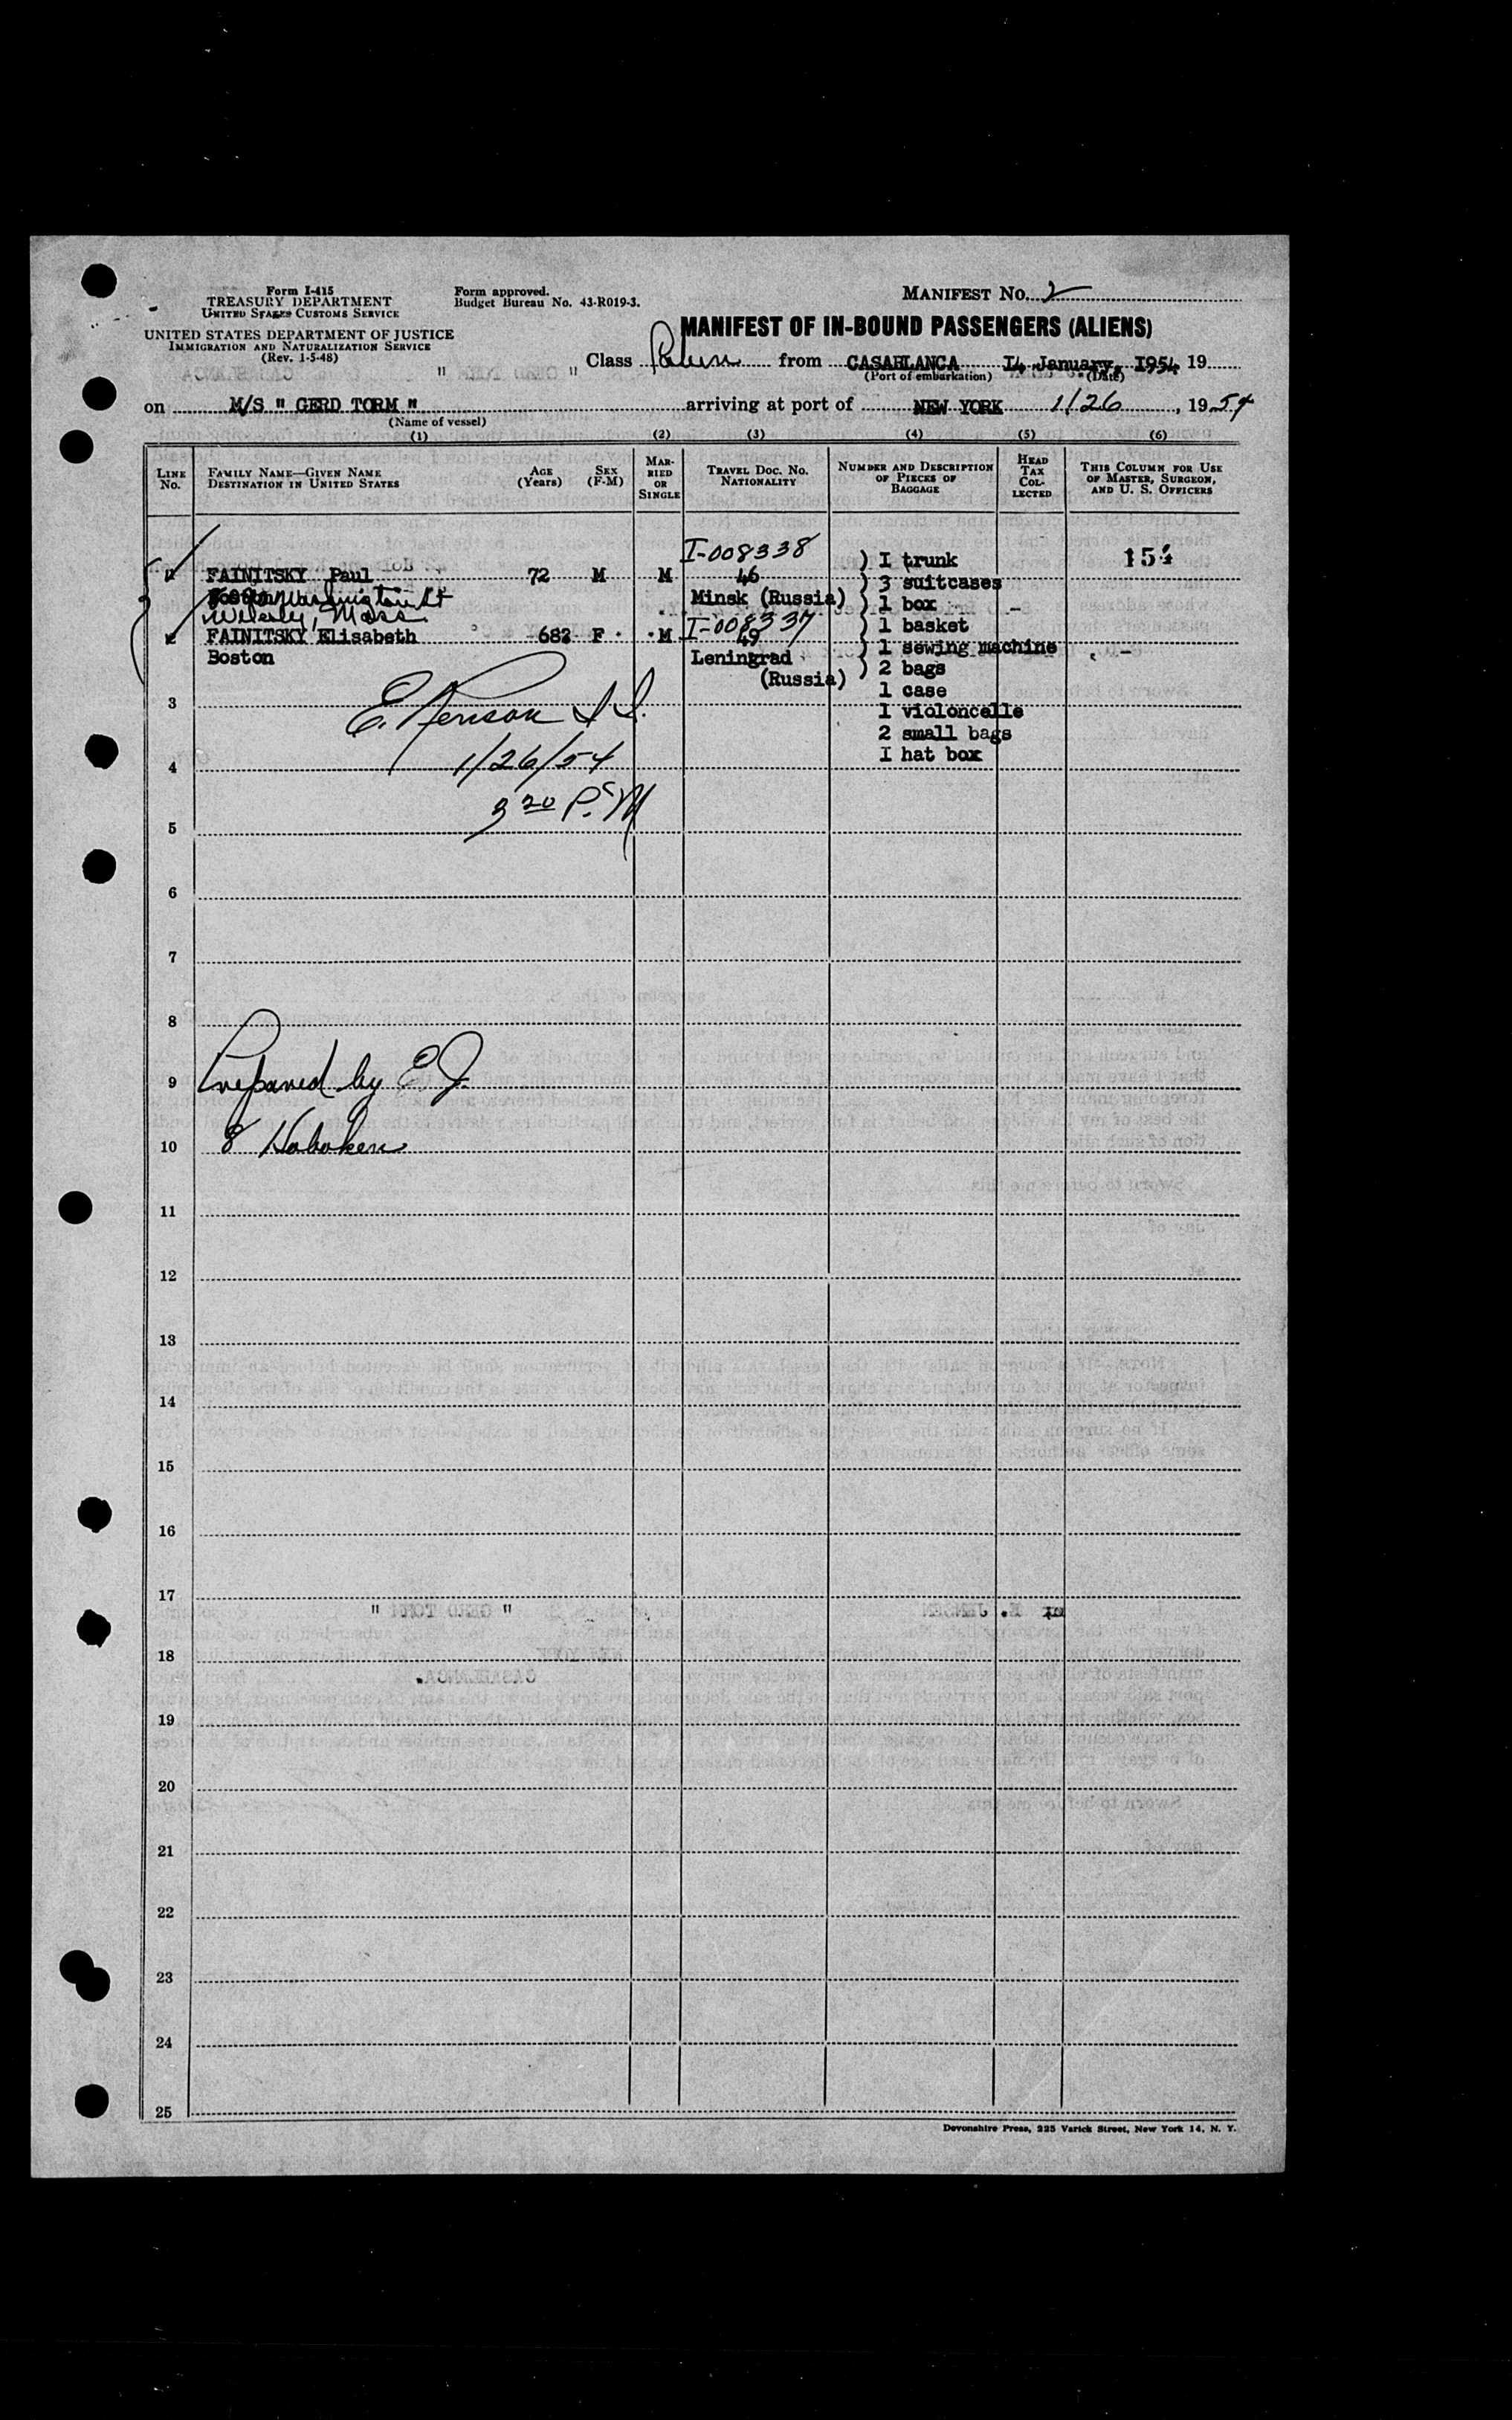 Form I-415
TREASURY DEPARTMENT
UNITED STATES CUSTOMS SERVICE
UNITED STATES DEPARTMENT OF JUSTICE
IMMIGRATION AND NATURALIZATION SERVICE
(Rev. 1-5-48)
Form approved.
Budget Bureau No. 43-R019-3.
MANIFEST NO. 2
MANIFEST OF IN-BOUND PASSENGERS (ALIENS)
Class from CASABLANCA 14 January, 1954 19
(Port of embarkation) (Date)
on M/S " GERD TORM " arriving at port of NEW YORK 1/26, 1954
(Name of vessel)
(1) (2) (3) (4) (5) (6)
LINE NO.
FAMILY NAME—GIVEN NAME
DESTINATION IN UNITED STATES
AGE (Years)
SEX (F-M)
MARRIED OR SINGLE
TRAVEL DOC. NO.
NATIONALITY
NUMBER AND DESCRIPTION OF PIECES OF BAGGAGE
HEAD TAX COLLECTED
THIS COLUMN FOR USE OF MASTER, SURGEON, AND U. S. OFFICERS
I-008338 ) I trunk 154
FAINITSKY Paul 72 M M 46 ) 3 suitcases
Washington St Minsk (Russia) ) 1 box –
Mass. I-008337 ) 1 basket
FAINITSKY Elisabeth 682 F M 49 ) 1 sewing machine –
Boston Leningrad ) 2 bags
(Russia) 1 case
3
1 violoncelle
2 small bags
I hat box
1/26/54
4
3 20 P.M
5
6
7
8
Prepared by E J.
9
8 Hoboken
10
11
12
13
14
15
16
17
18
19
20
21
22
23
24
25
Devonshire Press, 225 Varick Street, New York 14, N. Y.